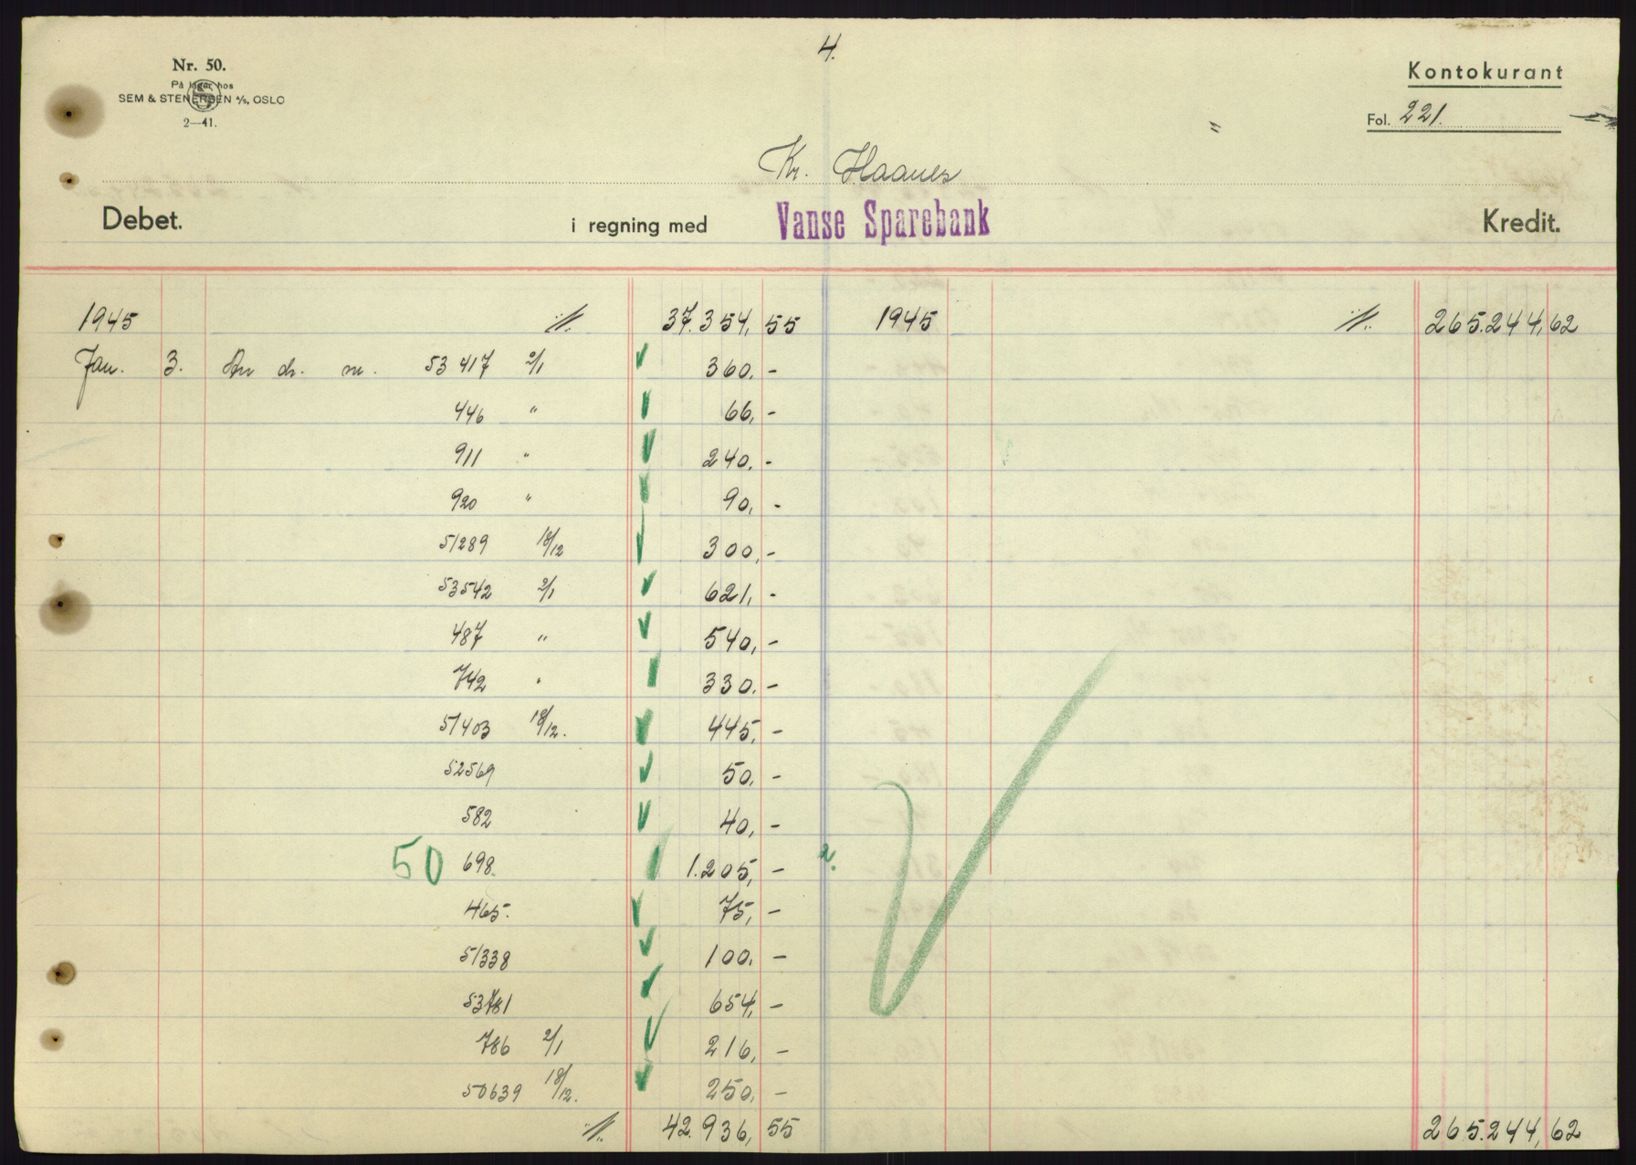 4.
Nr. 50.
På lager hos
SEM & STENERSEN A/S, OSLO
2—41.
Kontokurant
Fol. 221.
"
Kr. Haanes
Debet. i regning med Vanse Sparebank Kredit.
1945 37.354,55 1945 265.244,62
Jan. 3. An ch. nr. 53417 2/1 360,-
446 " 66,-
911 " 240,-
920 " 90,-
51289 18/12 300,-
53542 2/1 621,-
487 " 540,-
742 " 330,-
51403 18/12. 445,-
52569 50,-
582 40,-
50 698. 1.205,- 2.
465. 75,-
51338 100,-
53781 654,-
786 2/1 216,-
50639 18/12. 250,-
42.936,55 265.244,62